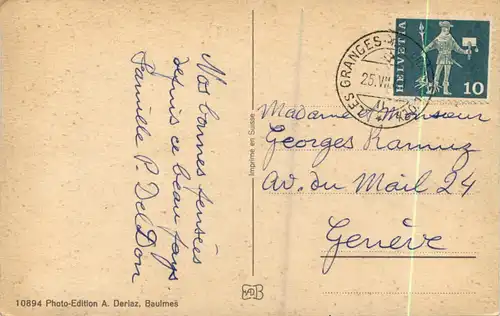 Nos bonnes pensées
depuis ce beau pays.
Famille P. Del Don
Imprimé en Suisse
LES GRANGES
25.VII
HELVETIA
10
Madame et Monsieur
Georges Ramuz
Av. du Mail 24
Genève
10894 Photo-Edition A. Deriaz, Baulmes